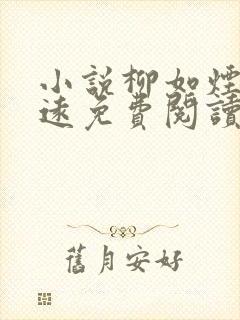 小說柳如煙
遠免費閱讀
舊月安好